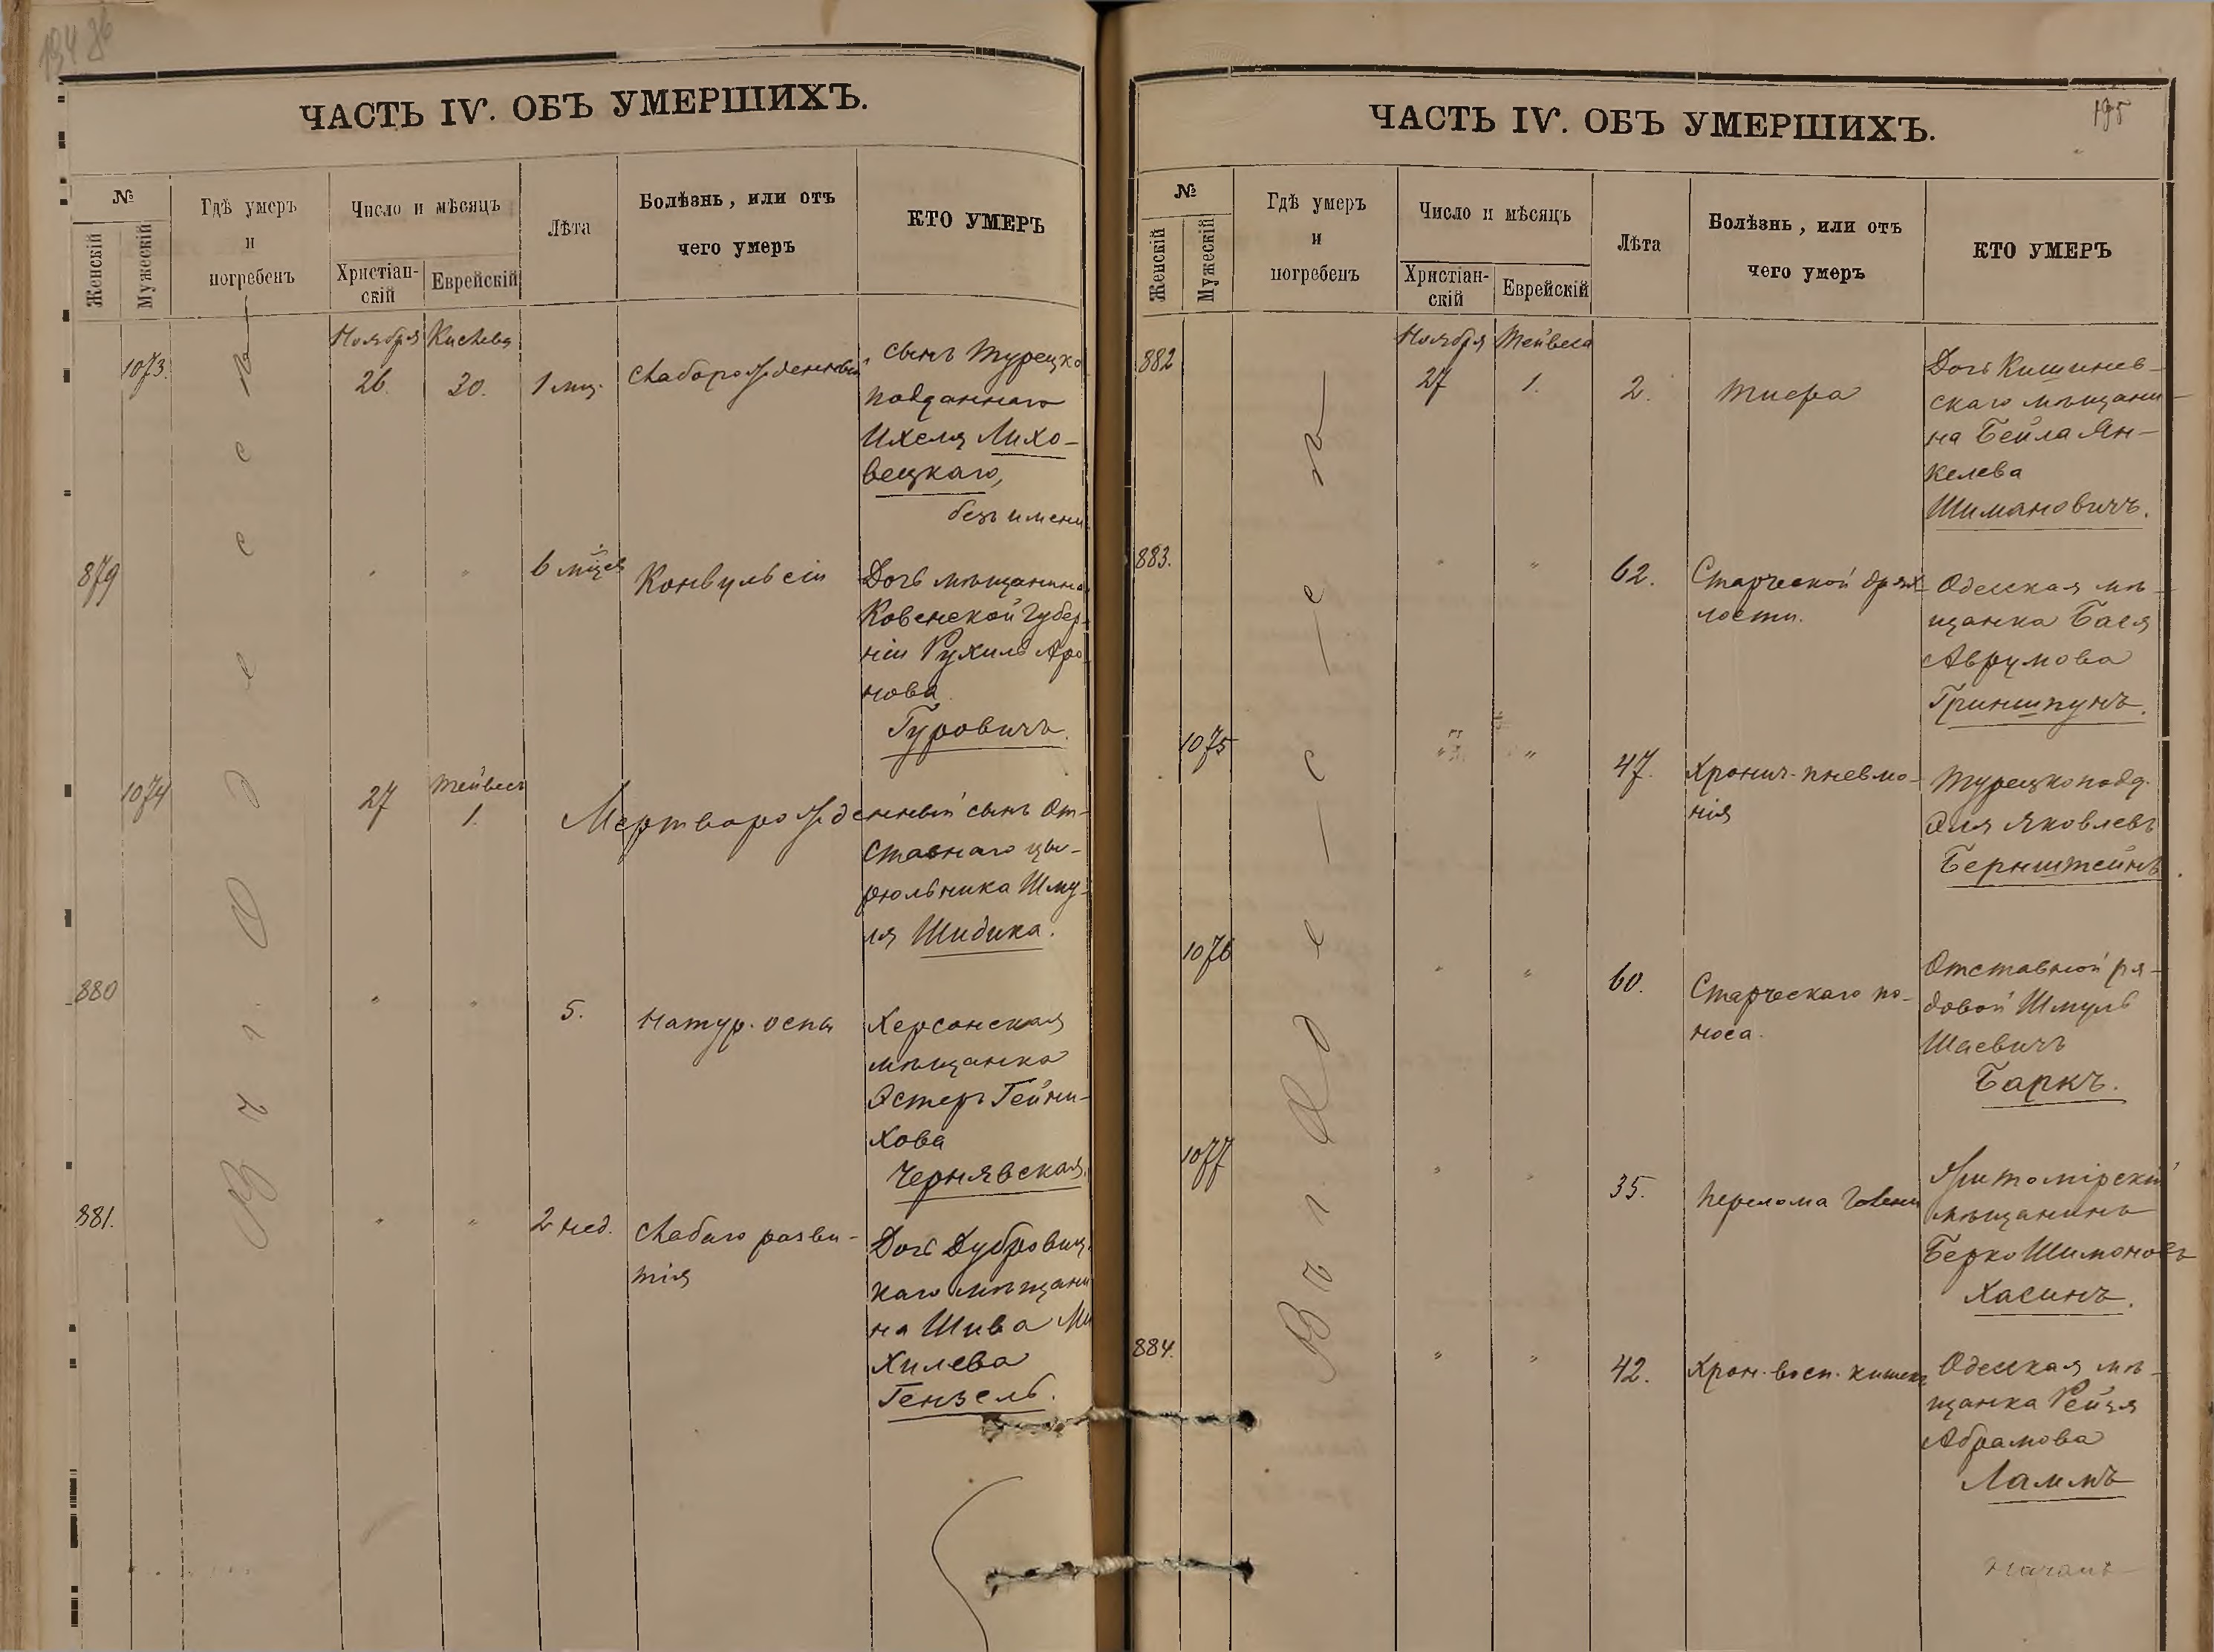 ЧАСТЬ IV. ОБЪ УМЕРШИХЪ.
№
Женскій
Мужескій
Гдѣ умеръ
и
погребенъ
Число и мѣсяцъ
Христіан-
скій
Еврейскій
Лѣта
Болѣзнь, или отъ
чего умеръ
КТО УМЕРЪ
Въ г. Одессѣ
1073.
Ноября
26.
Кислева
30.
1 мѣс.
Слаборожденный
сынъ Турецко
подданнаго
Ихеля Лихо-
вецкаго,
безъ имени
879
"
"
6 мѣсяц
Конвульсіи
Дочь мѣщанина
Ковенской губер-
ніи Рухиль Аро
нова
Гуровичъ.
1074
27
Тейвеса
1.
Мертворожденный сынъ От-
ставнаго цы-
рюльника Шму-
ля Шидика.
880
"
"
5.
Натур. оспы
Херсонская
мѣщанка
Эстеръ Гейни-
хова
Чернявская.
881.
"
"
2 нед.
Слабаго разви-
тія
Дочь Дубровиц
каго мѣщани
на Шива Ми
хилева
Гензель.
ЧАСТЬ IV. ОБЪ УМЕРШИХЪ.
195
№
Женскій
Мужескій
Гдѣ умеръ
и
погребенъ
Число и мѣсяцъ
Христіан-
скій
Еврейскій
Лѣта
Болѣзнь, или отъ
чего умеръ
КТО УМЕРЪ
Въ г. Одессѣ
882
Ноября
27
Тейвеса
1.
2.
Тифа
Дочь Кишинев-
скаго мѣщани-
на Бейла Ян-
келева
Шимановичъ.
883.
"
"
62.
Старческой дрях-
лости.
Одесская мѣ-
щанка Бася
Аврумова
Гриншпунъ.
1075
"
"
47.
Хронич. пневмо-
нія
Турецкоподд.
Эля Яковлевъ
Бернштейнъ.
1076
"
"
60.
Старческаго по-
носа.
Отставной ря-
довой Шмуль
Шаевичъ
Баркъ.
1077
"
"
35.
Перелома голени
Житомірскій
мѣщанинъ
Берко Шимоновъ
Хасинъ.
884.
"
"
42.
Хрон. восп. кишекъ
Одесская мѣ-
щанка Рейзя
Абрамова
Ламмъ